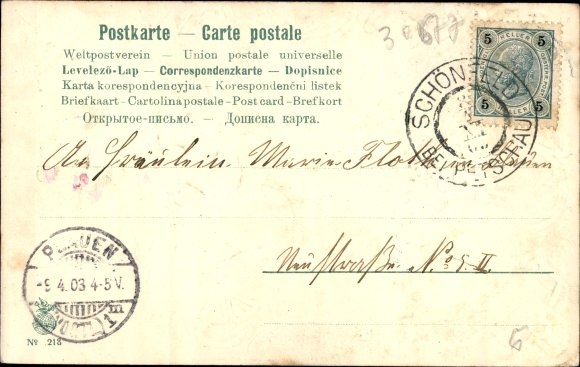 Postkarte — Carte postale
Weltpostverein — Union postale universelle
Levelező-Lap — Correspondenzkarte — Dopisnice
Karta korespondencyjna — Korespondenční listek
Briefkaart - Cartolina postale - Post card - Brefkort
Открытое-письмо. — Дописна карта.
5 HELLER 5
5 5
SCHÖNFELD
BEI PETSCHAU
An Fräulein Marie
Neustraße No 5 II.
PLAUEN
-9.4.03 4-5V.
No 213
6